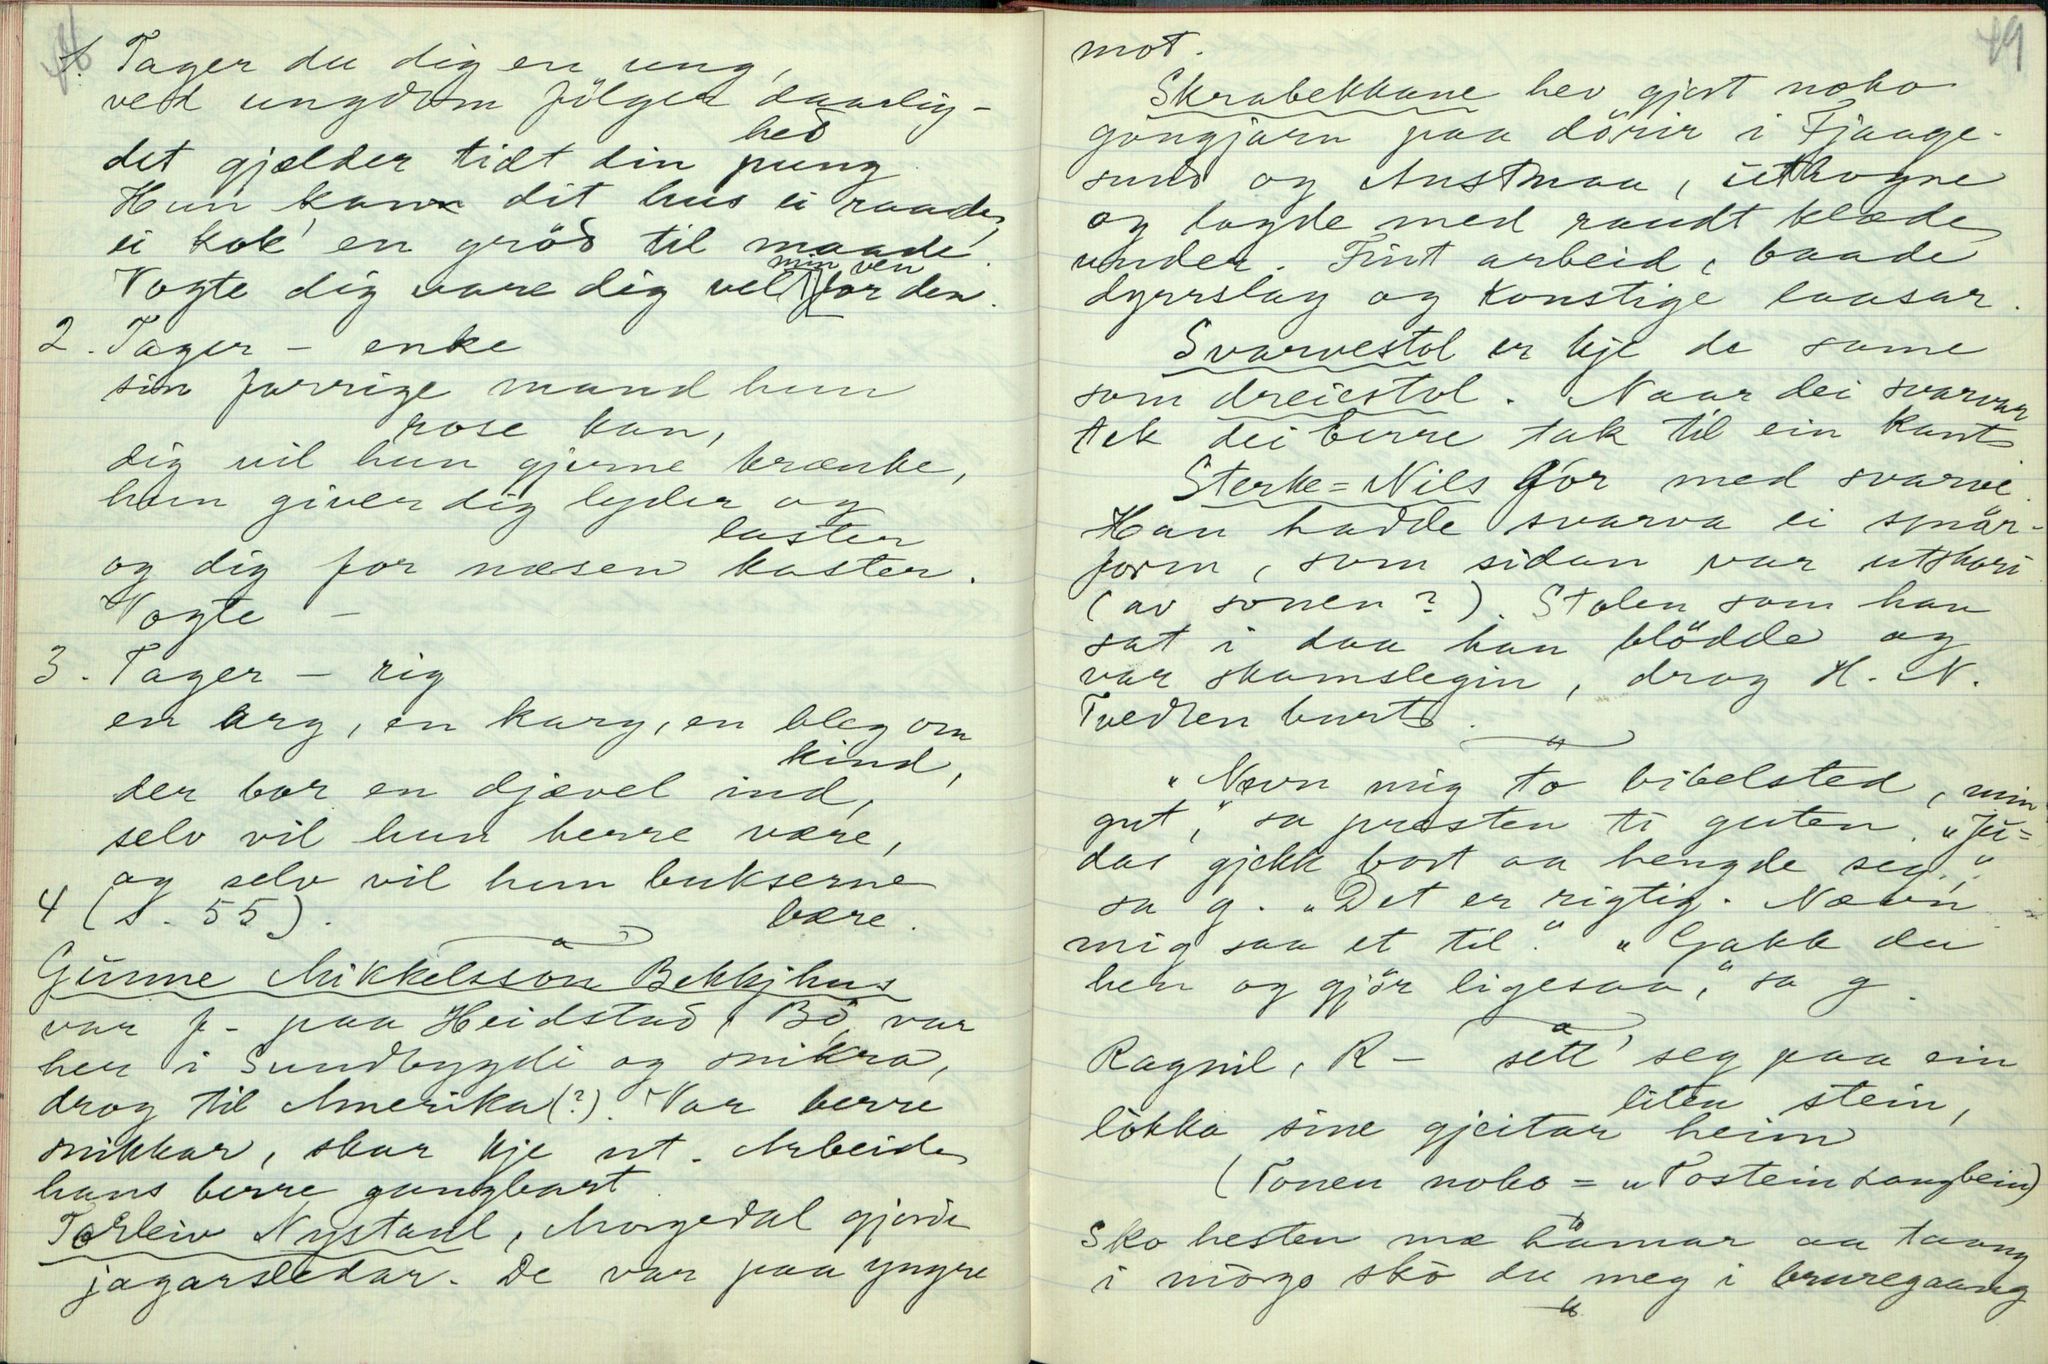 1. Tager du dig en ung,
ved ungdom fölger daarlig-
hed
det gjælder tidt din pung.
Hun kan dit hus ei raade,
ei kok' en gröd til maade.
Vogte dig vare dig vel min ven for den.
2. Tager – enke
sin forrige mand hun
rose kan,
dig vil hun gjerne krænke,
hun giver dig lyder og
laster
og dig for næsen kaster.
Vogte –
3. Tager – rig
en arg, en karg, en bleg om
kind,
der bor en djævel ind,
selv vil hun herre være,
og selv vil hun bukserne
bære.
4 (S. 55).
Gunne Mikkelsson Bekkjhus
var f- paa Heidstad i Bö, var
her i Sundbygdi og snikra,
drog til Amerika(?). Var berre
snikkar, skar kje ut. Arbeide
hans berre gangbart.
Torleiv Nystaul, Morgedal gjorde
jagarsledar. De var paa yngre
49
mot.
Skrabekkane hev gjort noko
gongjarn paa dörir i Fjaage-
sund og Austmaa, uthogne
og lagde med raudt klæde
under. Fint arbeid, baade
dyrrslag og konstige laasar.
Svarvestol er kje de same
som dreiestol. Naar dei svarvar
tek dei berre tak til ein kant
Sterke-Nils for med svarvi.
Han hadde svarva ei smör-
form, som sidan var utskori
(av sonen?). Stolen som han
sat i daa han blödde og
var skamslegin, drog H. N.
Tvedten burt.
"Nævn mig to bibelsted, min
gut," sa presten ti guten. "Ju-
das gjekk bort aa hengde seg,"
sa g. "Det er rigtig. Nævn
mig saa et til." "Gakk du
hen og gjör ligesaa," sa g.
Ragnil, R – sett' seg paa ein
liten stein,
lokka sine gjeitar heim
(Tonen noko = "Tostein Langbein)
Sko hesten mæ hamar aa taang
i morgo sko du meg i bruregaang